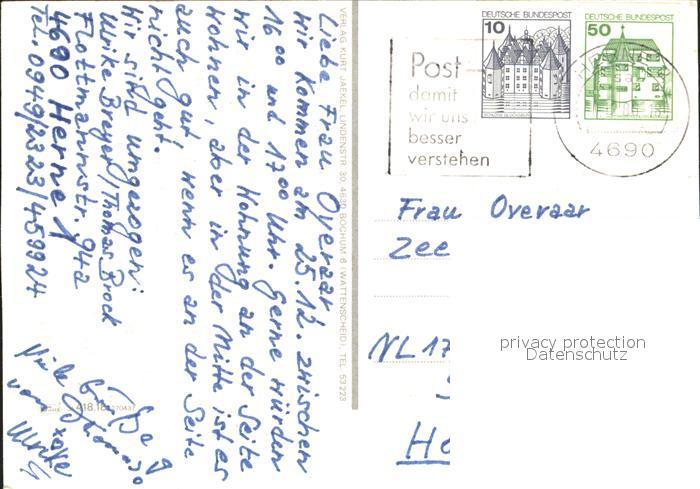 Liebe Frau Overaar
wir kommen am 25.12. zwischen
16⁰⁰ und 17⁰⁰ Uhr. Gerne würden
wir in der Wohnung an der Seite
wohnen, aber in der Mitte ist es
auch gut wenn es an der Seite
nicht geht.
Wir sind umgezogen:
Ulrike Breyer/Thomas Brock
Flottmannstr. 94a
4690 Herne 1
Tel. 0949/2323/459924
Viele
von
VERLAG KURT JAEKEL, LINDENSTR. 30, 4630 BOCHUM 6 (WATTENSCHEID), TEL. 53223
418.18
Post
damit
wir uns
besser
verstehen
DEUTSCHE BUNDESPOST
10
DEUTSCHE BUNDESPOST
50
4690
Frau Overaar
Zee
NL 17
He
privacy protection
Datenschutz